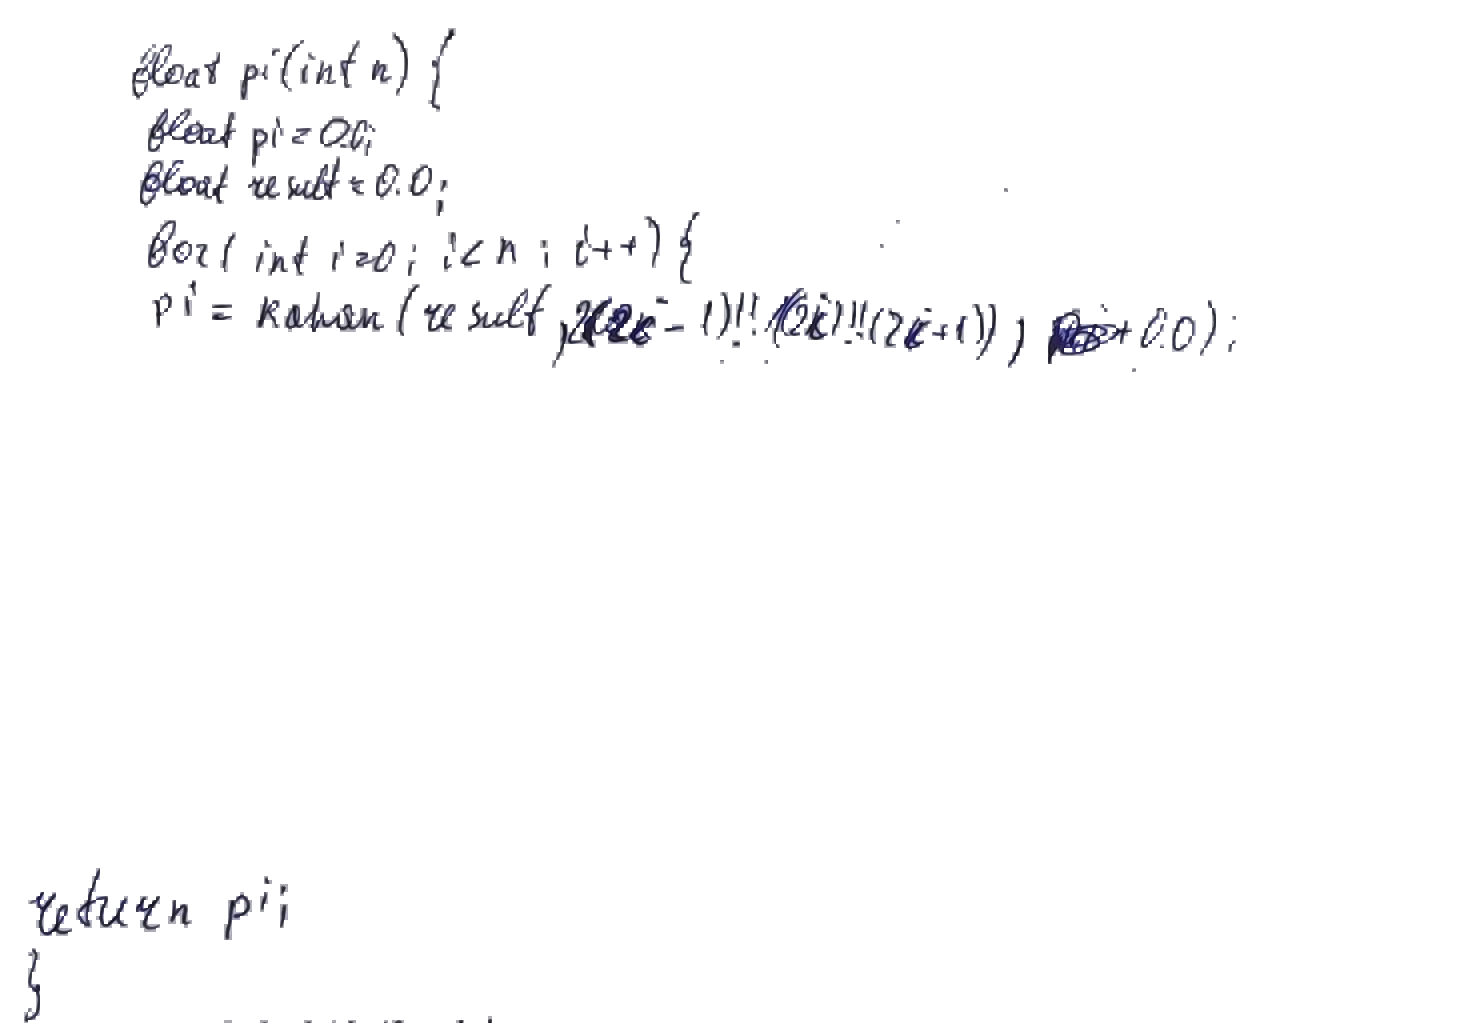 float pi(int n) {
float pi = 0.0;
float result = 0.0;
for( int i=0; i< n ; i++) {
pi = kahan (result, 2((2i - 1)!! /((2i)!!(2i+1)) , + 0.0);
return pi;
}